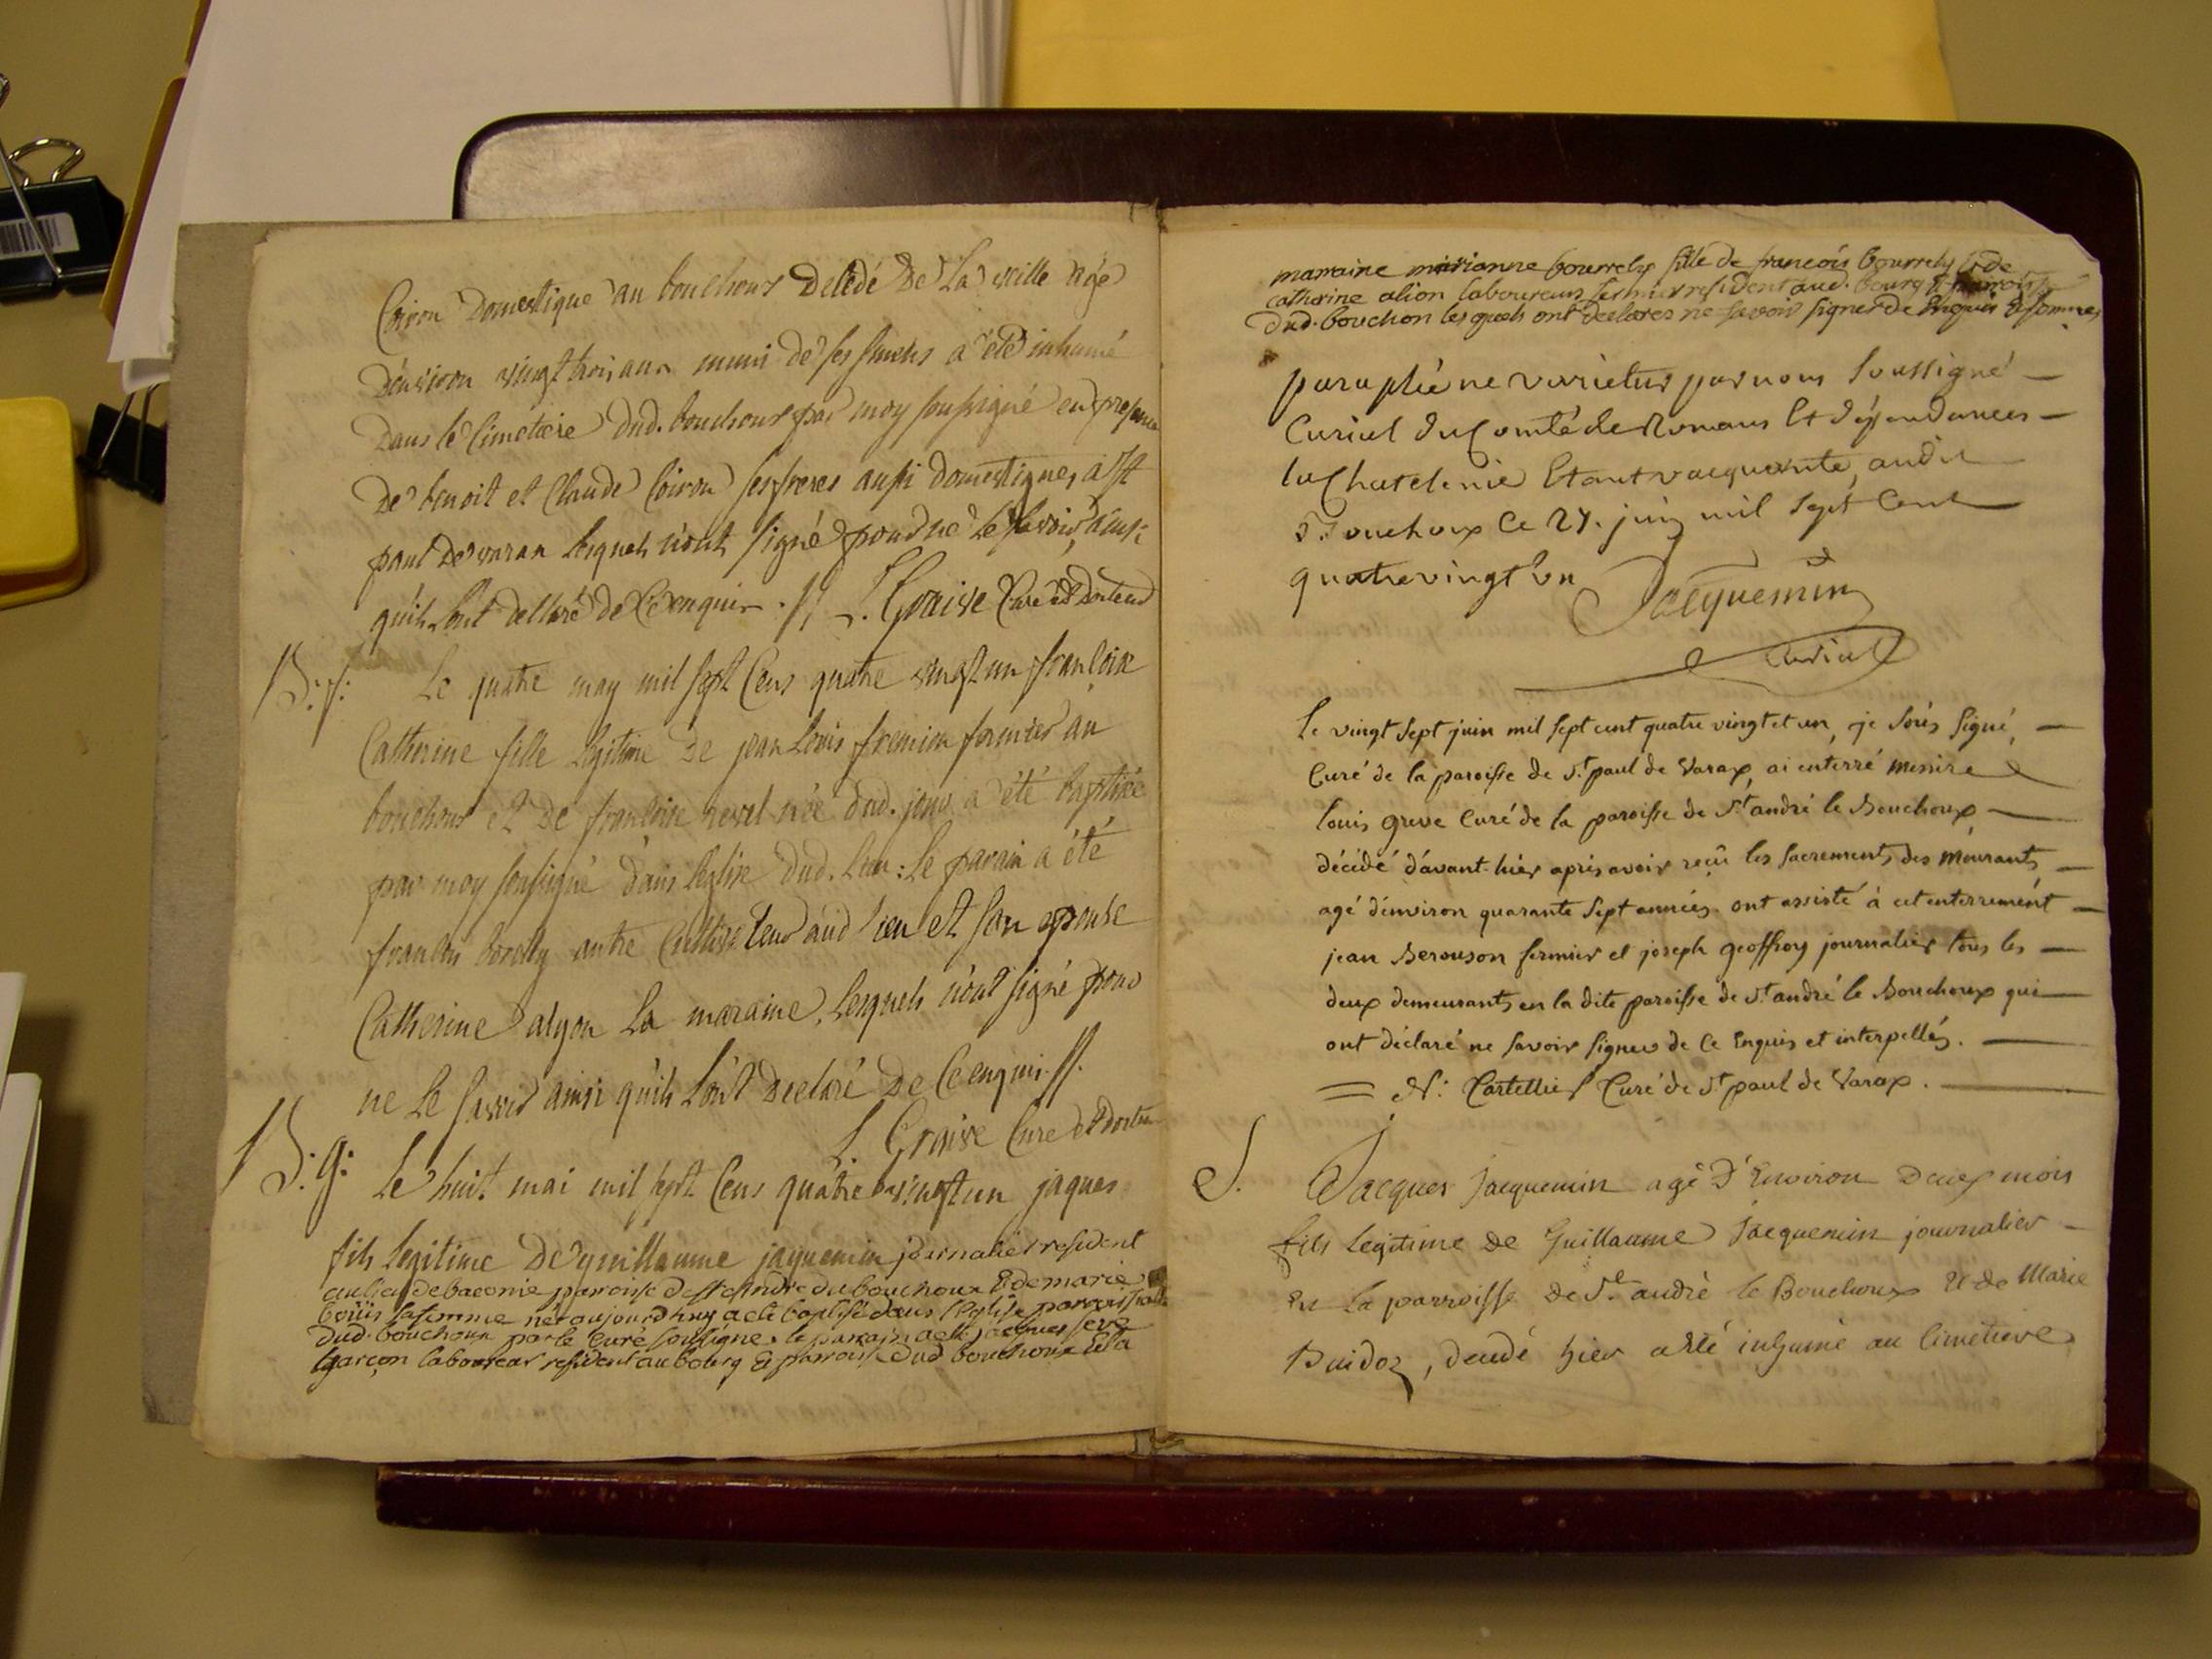 Coiron Domestique au bouchoux Decedé De La veille agé
D'environ vingt trois ans muni de ses smens a été inhumé
Dans le Cimetiere dud. bouchoux par moy soussigné en presence
De benoit et Claude Coiron ses freres aussi domestiques a st
paul De varax lesquels n'ont signé pour ne le savoir, ainsi
qu'ils l'ont declaré de ce enquis . //. L. Graive Curé
B. f. Le quatre may mil sept Cens quatre vingt un françoise
Catherine fille legitime De jean Louis fermier au
bouchoux et De françoise revel née dud. jour a été baptisée
par moy soussigné dans leglise dud. lieu : le parain a été
françois borelly autre Cultivateur aud lieu et son epouse
Catherine alyon La maraine, lesquels n'ont signé pour
ne Le savoir ainsi qu'ils l'ont Declaré De Ce enquis. //.
L. Graive Curé
B. g. Le huit mai mil sept Cens quatre vingt un jaques
fils legitime De guillaume jaquemin journalier resident
au lieu de baconie parroisse de st andre du bouchoux & de marie
sa femme né aujourdhuy a eté baptisé dans l'Eglise parroissialle
dud. bouchoux par le Curé soussigné. le parrain a eté jacques seve
garçon laboureur resident au bourg & parroisse dud bouchoux Et la
marraine marianne bourrely fille de francois bourrely & de
catherine alion laboureurs fermier resident aud. bourg & parroisse
dud. bouchon les quels ont declares ne savoir signer de Enquis & sommes
paraphé ne varietur par nous soussigné —
Curial du Comté de Romans Et dépendances —
la Chatelenie Etant vacquante, audit
Bouchoux Ce 27. juin mil sept Cent
quatrevingt un Jacquemin
Curial
Le vingt sept juin mil sept cent quatre vingt et un, je sous signé, —
Curé de la paroisse de St paul de Varax, ai enterré messire
louis greve Curé de la paroisse de St andré le Bouchoux —
décédé d'avant-hier après avoir reçu les sacrements des mourants, —
agé d'environ quarante sept années. ont assisté à cet enterrement —
jean Berouson fermier et joseph geoffroy journalier tous les —
deux demeurants en la dite paroisse de St andré le Bouchoux qui —
ont déclaré ne savoir signer de Ce Enquis et interpellés. —
= N: Cartellier Curé de St paul de Varax. —
S. Jacques Jacquemin agé d'Environ deux mois
fils legitime de Guillaume Jacquemin journalier —
En la parroisse de St andré le Bouchoux & de Marie
Buidoz, decedé hier a été inhumé au Cimetiere